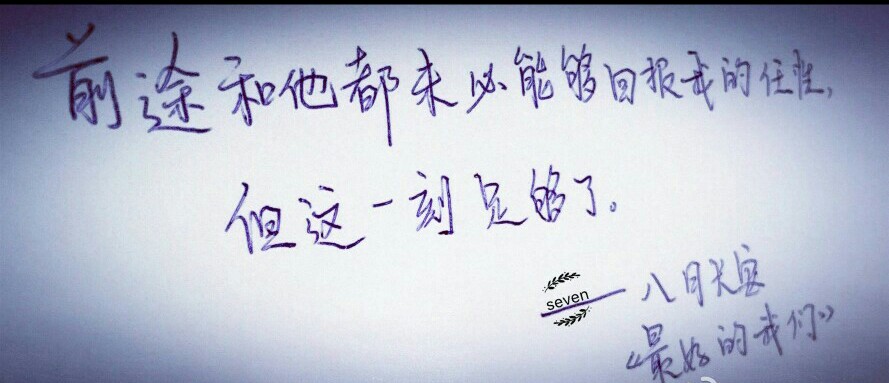 前途和他都未必能够回报我的任性,
但这一刻足够了。
seven
——八月长安
《最好的我们》